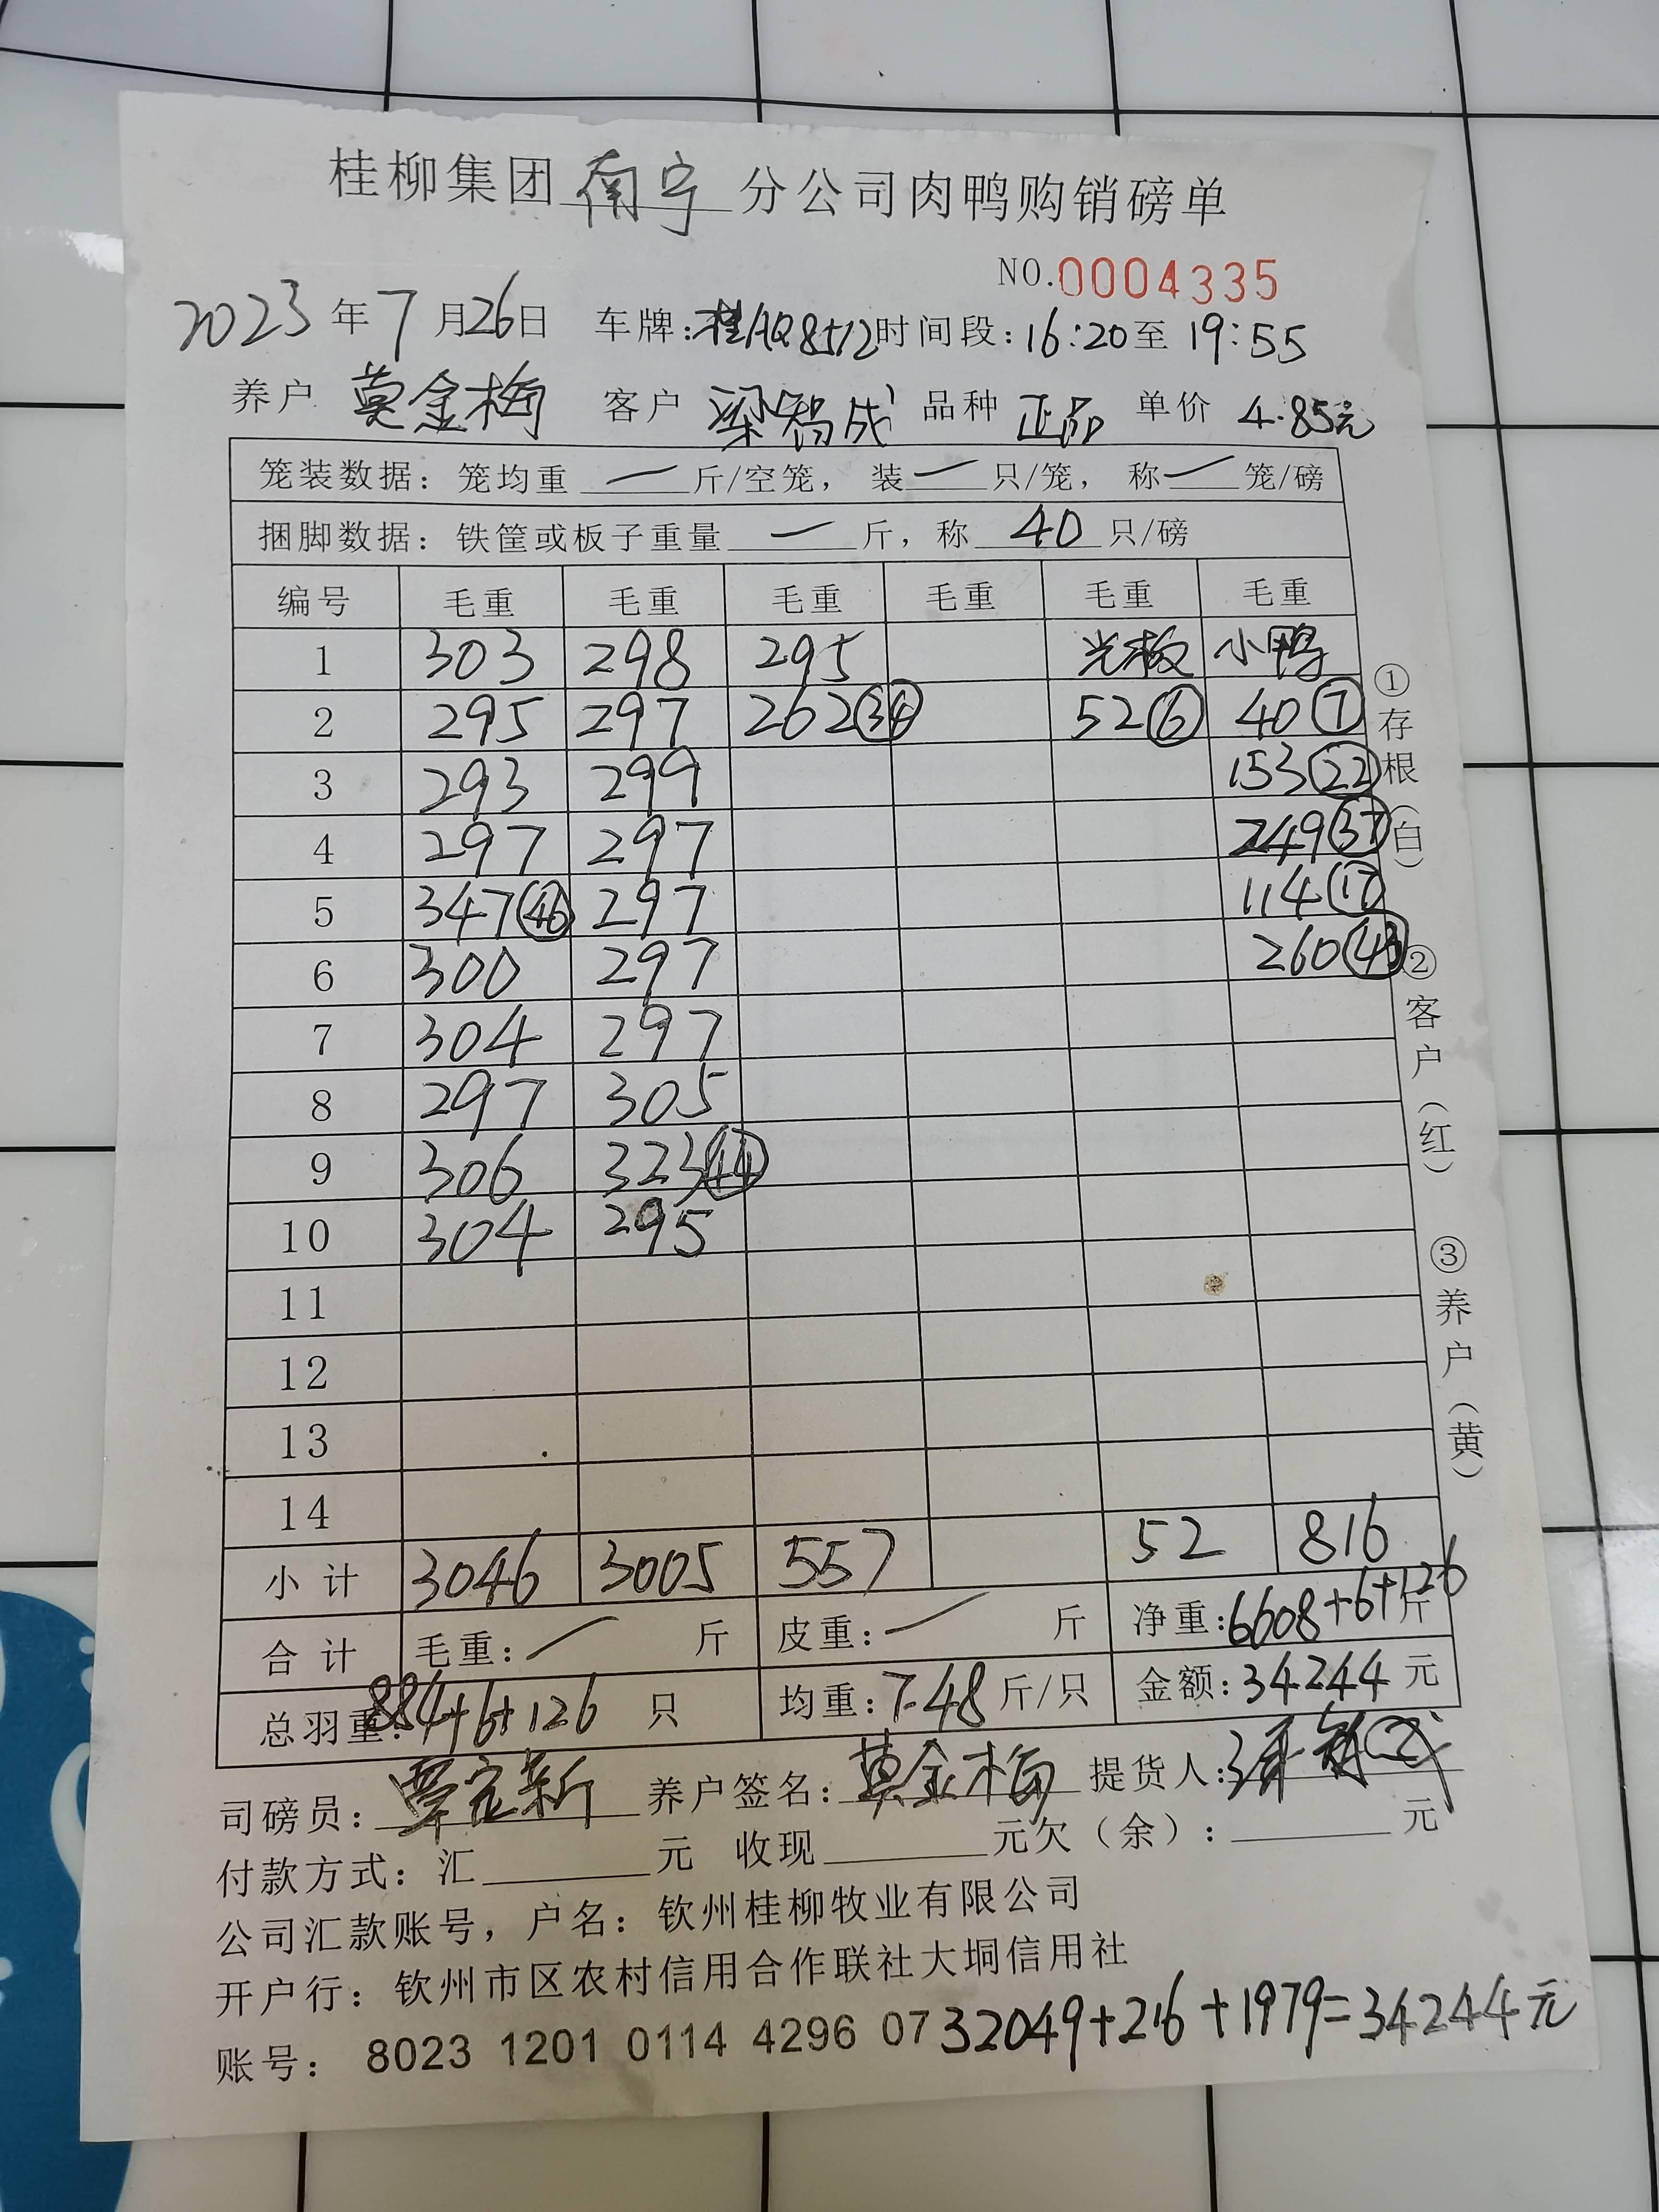 桂柳集团 南宁 分公司肉鸭购销磅单
NO.0004335
2023年7月26日 车牌:桂AQ8512 时间段:16:20至19:55
养户 莫金梅 客户 梁智成 品种 正品 单价 4.85元
笼装数据: 笼均重 — 斤/空笼, 装 — 只/笼, 称 — 笼/磅
捆脚数据: 铁筐或板子重量 — 斤, 称 40 只/磅
编号 毛重 毛重 毛重 毛重 毛重 毛重
1 303 298 295 光板 小鸭
2 295 297 262 52⑥ 40⑦
3 293 299 153㉒
4 297 297 249㊲
5 347㊻ 297 114⑰
6 300 297 260㊸
7 304 297
8 297 305
9 306 323㊹
10 304 295
11
12
13
14
小计 3046 3005 557 52 816
合计 毛重: — 斤 皮重: — 斤 净重:6608+6+126斤
总羽重:884+6+126 只 均重:7.48斤/只 金额:34244元
司磅员: 覃定新 养户签名: 莫金梅 提货人:
付款方式: 汇 元 收现 元欠(余): 元
公司汇款账号, 户名: 钦州桂柳牧业有限公司
开户行: 钦州市区农村信用合作联社大垌信用社
账号: 8023 1201 0114 4296 07
32049+216+1979=34244元
①存根(白)
②客户(红)
③养户(黄)